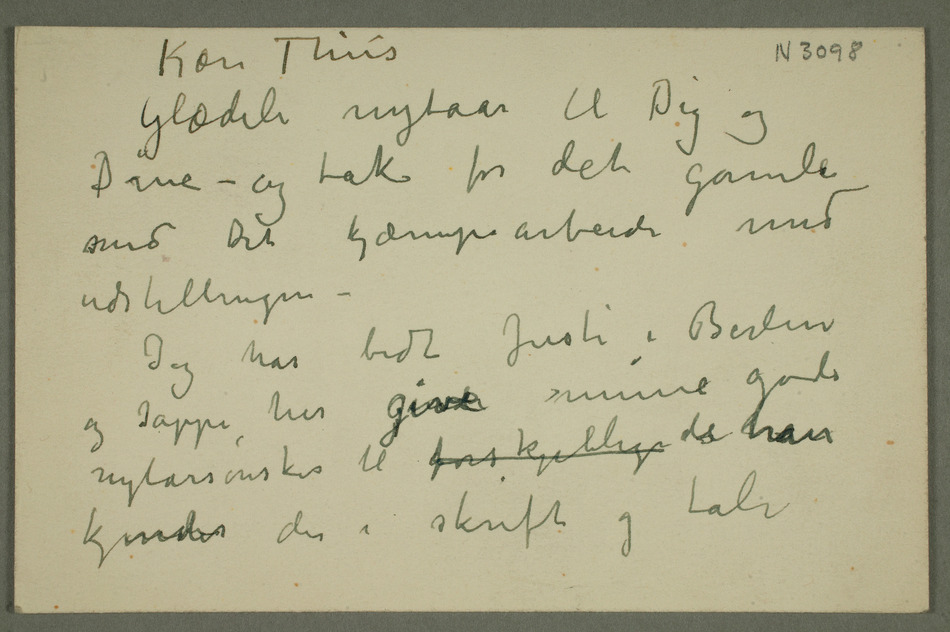 Kære Thiis
N 3098
Glædeli nytaar til Dig og
Dine – og tak for det gamle
med Dit kjæmpearbeide med
udstillingen –
Jeg har bedt Justi i Berlin
og Sappe, her give mine gode
nytarsønsker til forskjellige de han
kjender der i skrift og tale